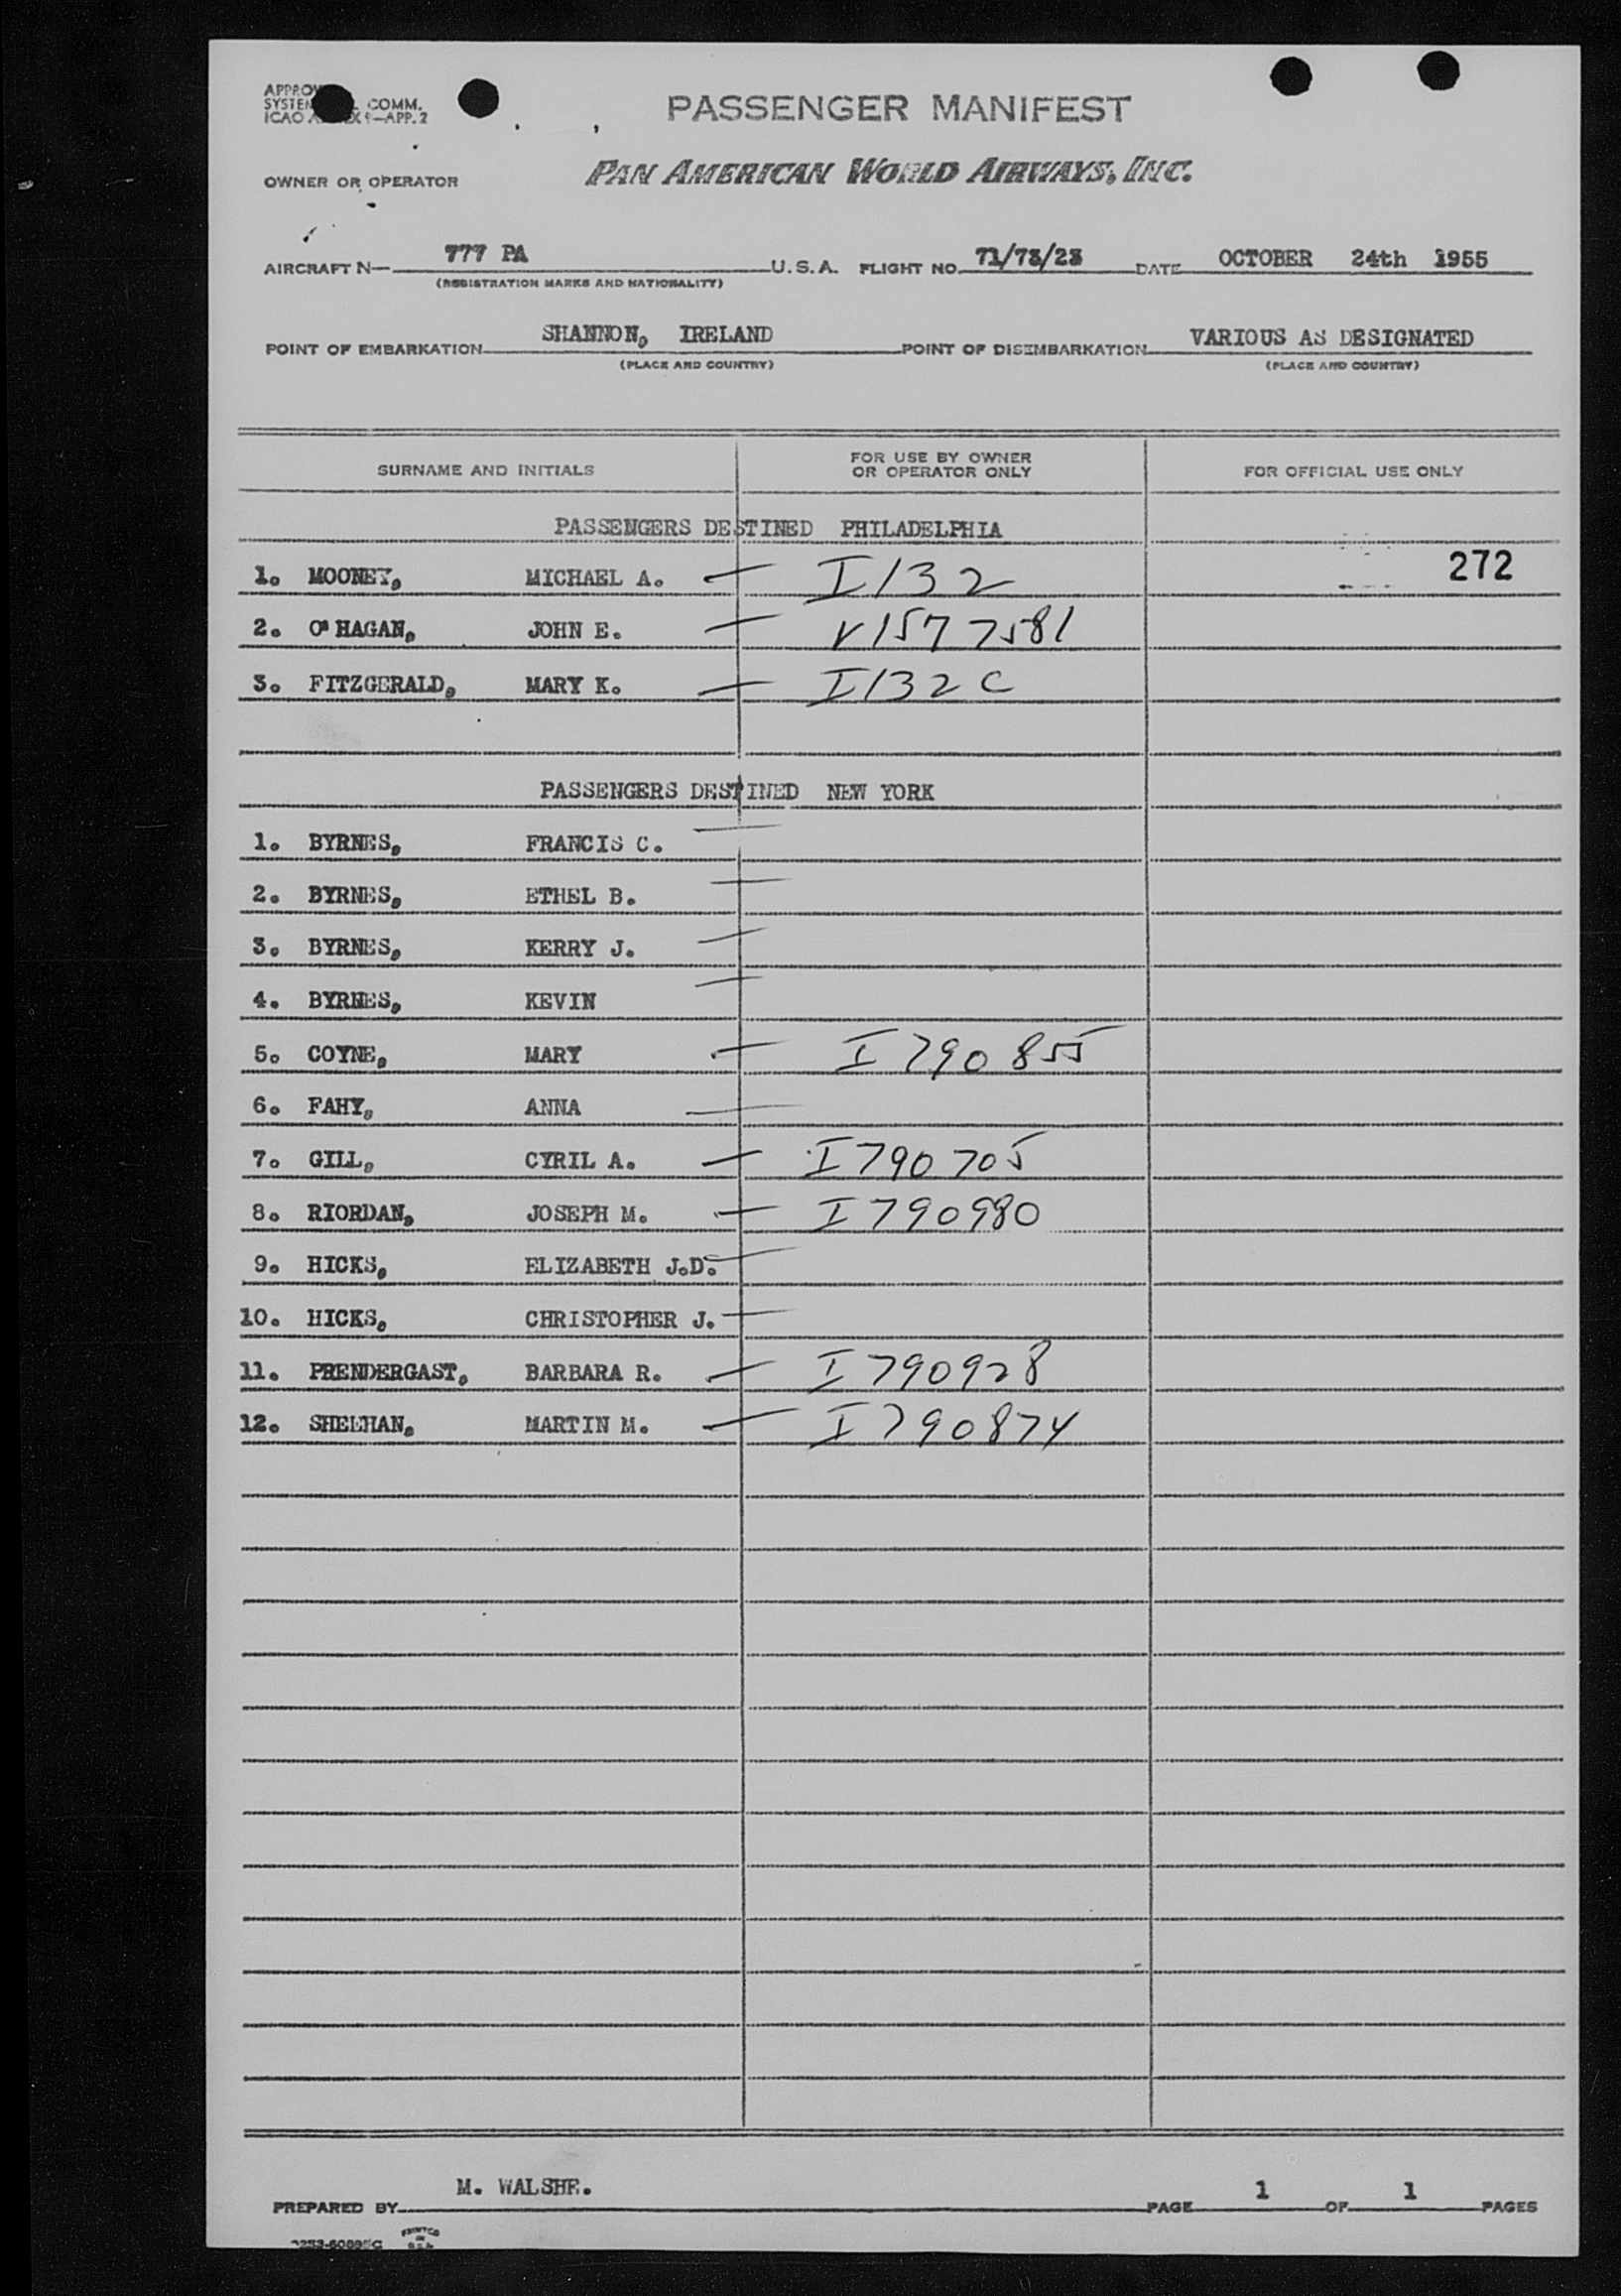 PASSENGER MANIFEST
COMM.
ICAO
APP. 2
OWNER OR OPERATOR PAN AMERICAN WORLD AIRWAYS, INC.
AIRCRAFT N— 777 PA U.S.A. FLIGHT NO. 71/73/23 DATE OCTOBER 24th 1955
(REGISTRATION MARKS AND NATIONALITY)
POINT OF EMBARKATION SHANNON, IRELAND POINT OF DISEMBARKATION VARIOUS AS DESIGNATED
(PLACE AND COUNTRY) (PLACE AND COUNTRY)
SURNAME AND INITIALS FOR USE BY OWNER OR OPERATOR ONLY FOR OFFICIAL USE ONLY
PASSENGERS DESTINED PHILADELPHIA
1. MOONEY, MICHAEL A. — I132 272
2. O'HAGAN, JOHN E. — V1577581
3. FITZGERALD, MARY K. — I132C
PASSENGERS DESTINED NEW YORK
1. BYRNES, FRANCIS C. —
2. BYRNES, ETHEL B. —
3. BYRNES, KERRY J. —
4. BYRNES, KEVIN —
5. COYNE, MARY — I790855
6. FAHY, ANNA —
7. GILL, CYRIL A. — I790705
8. RIORDAN, JOSEPH M. — I790980
9. HICKS, ELIZABETH J.D. —
10. HICKS, CHRISTOPHER J. —
11. PRENDERGAST, BARBARA R. — I790928
12. SHEEHAN, MARTIN M. — I790874
PREPARED BY M. WALSHE. PAGE 1 OF 1 PAGES
PRINTED IN U.S.A.